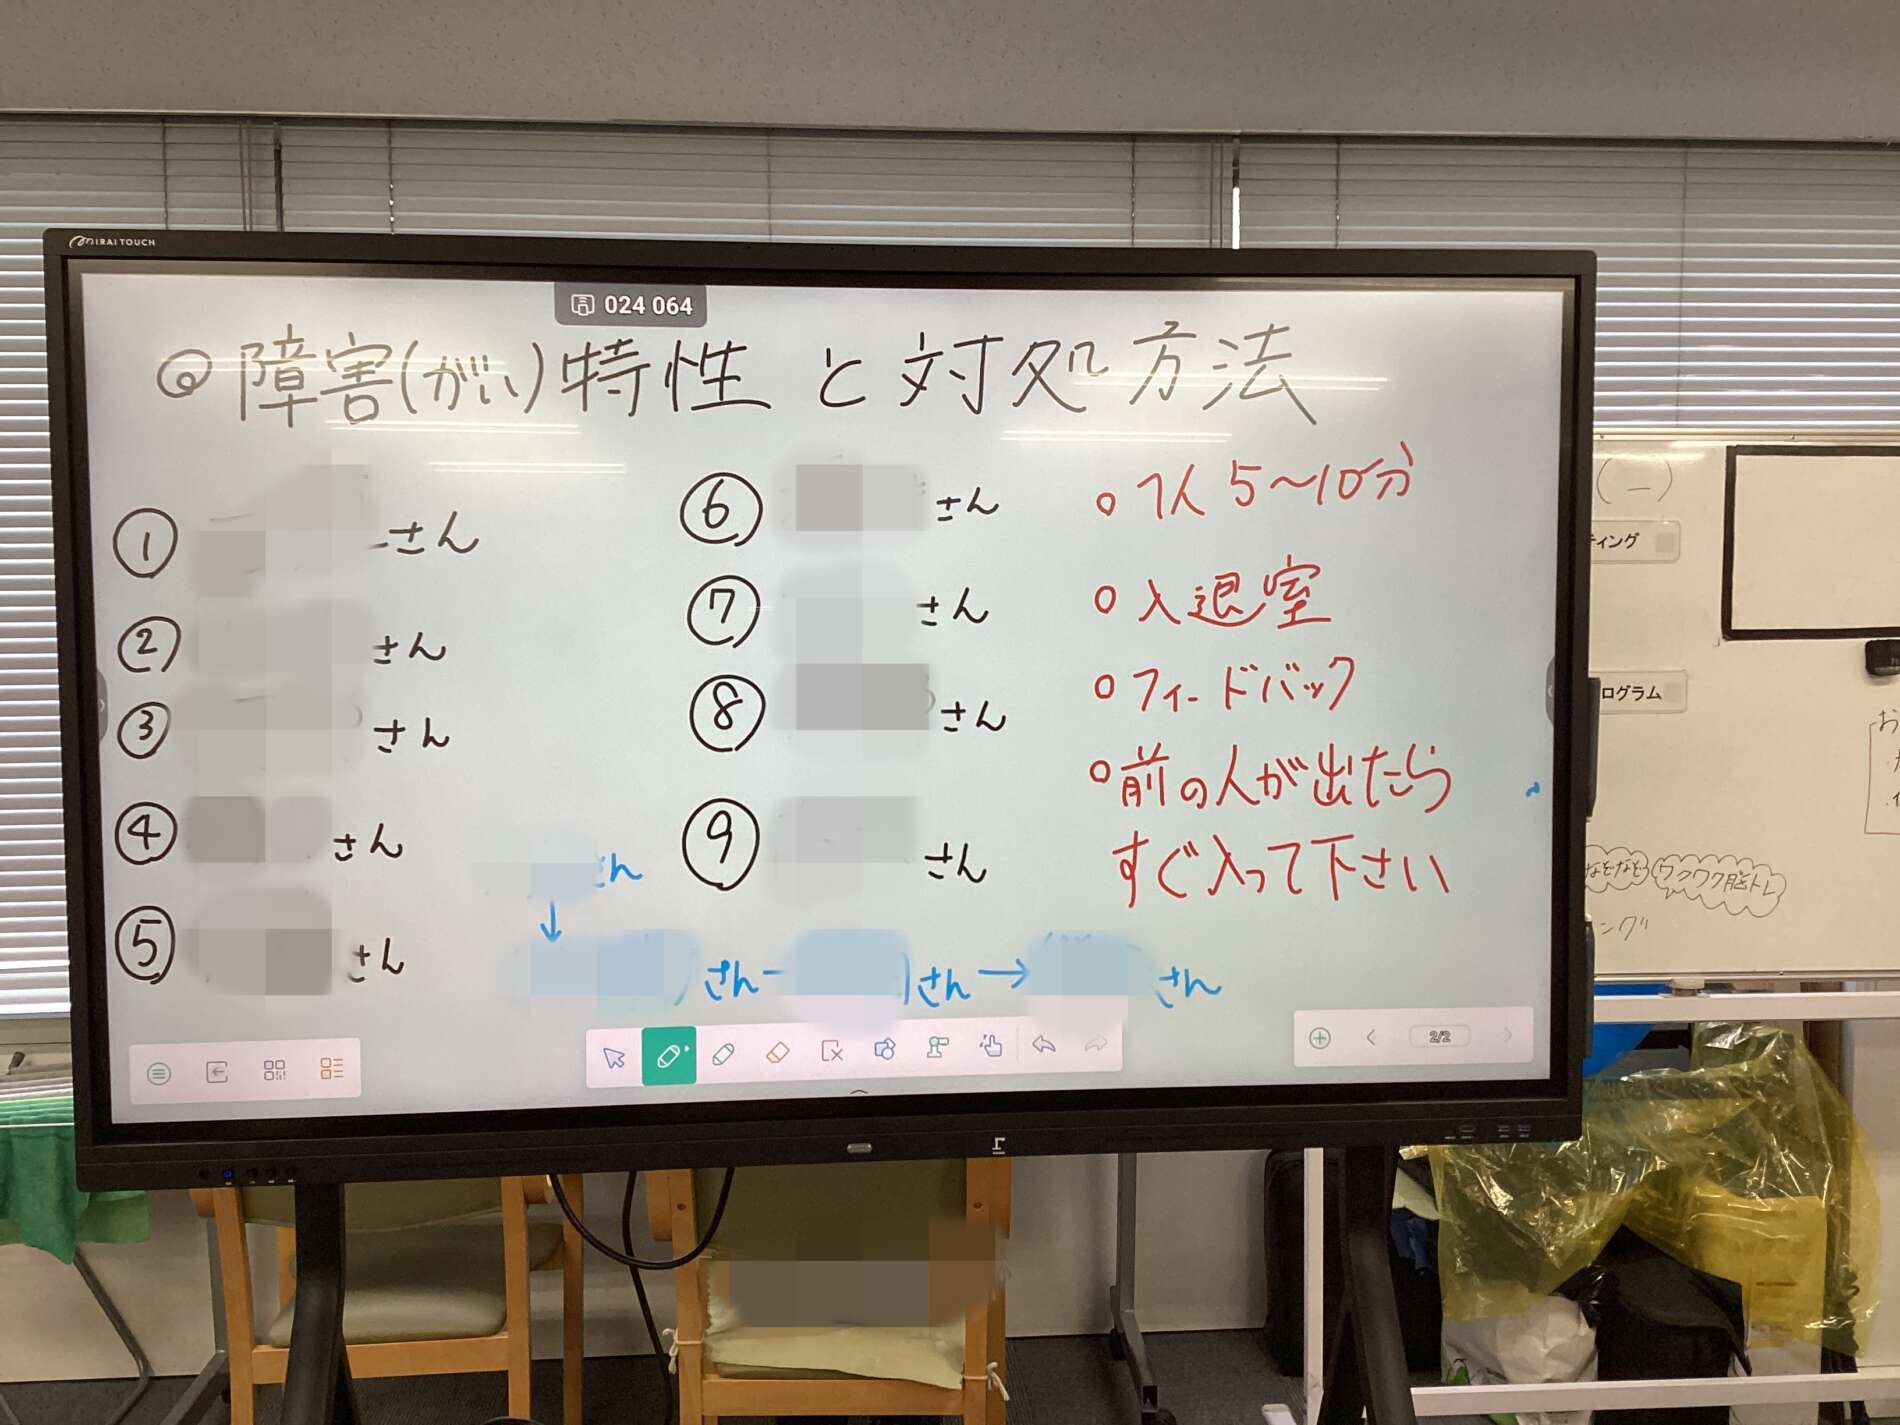 MIRAI TOUCH
024 064
◎障害(がい)特性と対処方法
① さん
② さん
③ さん
④ さん
⑤ さん
⑥ さん
⑦ さん
⑧ さん
⑨ さん
○1人 5〜10分
○入退室
○フィードバック
○前の人が出たら
すぐ入って下さい
さん
↓
さん－ さん→ さん
2/2
(一)
ティング
ログラム
お
なぞなぞ ワクワク脳トレ
ング